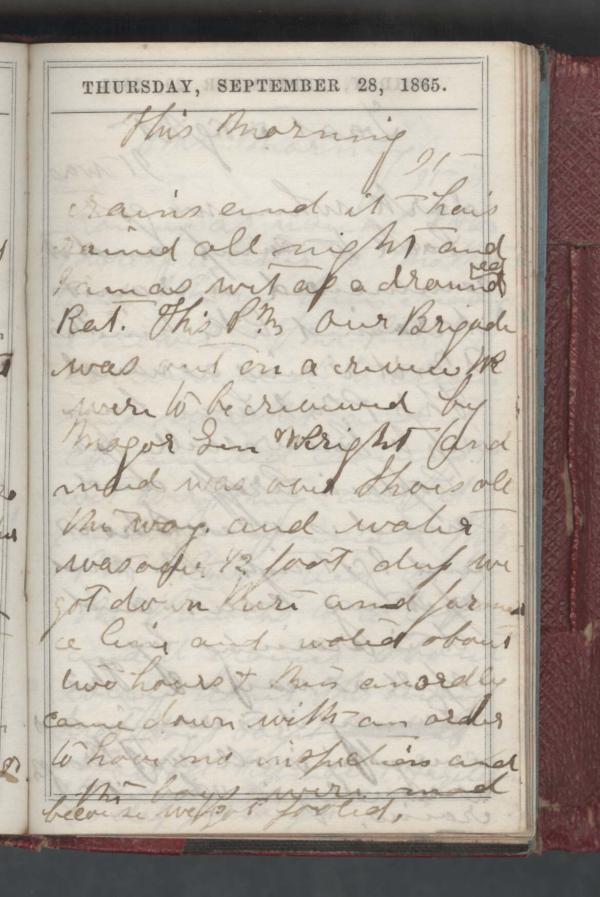 THURSDAY, SEPTEMBER 28, 1865.
This Morning
it
rains and it hais
rained all night and
I am as wet as a dround
Rat. This P.M. our Brigade
was out on a review We
were to be reviewed by
Magor Gen Wright (and
mud was over Shois all
the way. and water
was over 1/2 foot dep we
got down there and formed
a line and wated about
two hours & then an ordly
came down with an order
to have no inspection and
the boys were mad
because we got fooled.